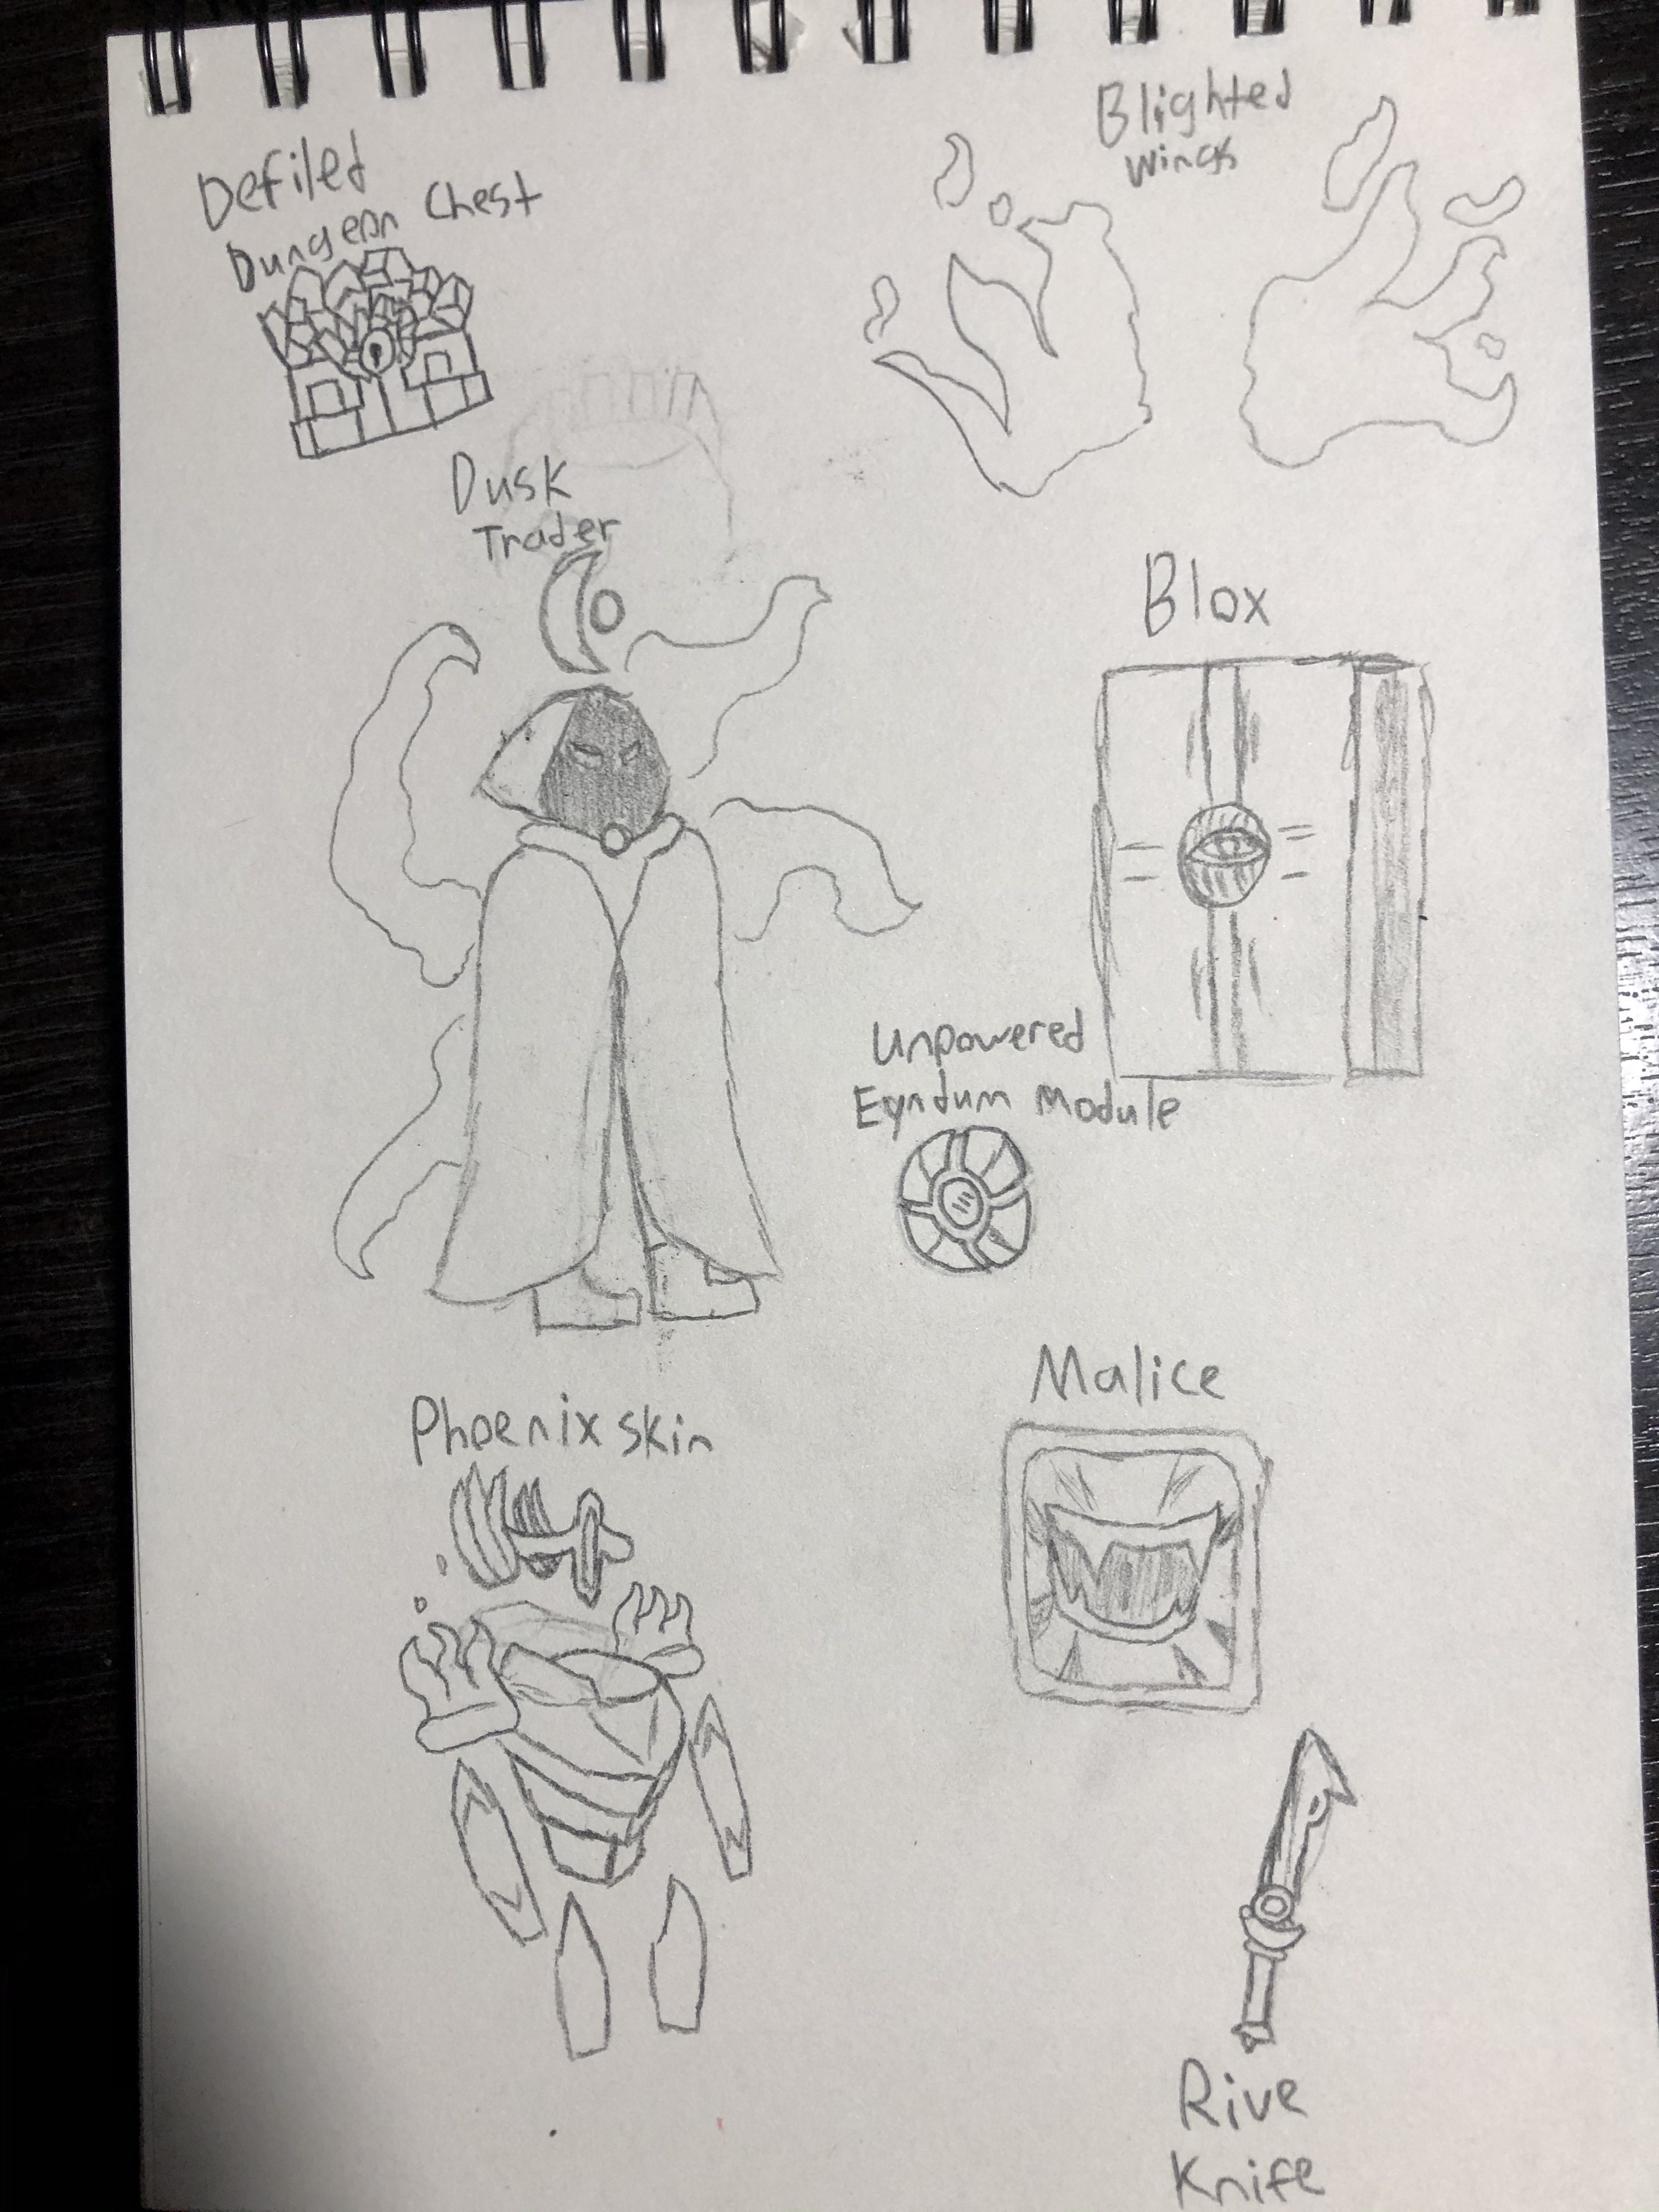 Defiled
Dungeon Chest
Blighted
Wings
Dusk
Trader
Blox
Unpowered
Eyndum Module
Malice
Phoenix skin
Rive
Knife